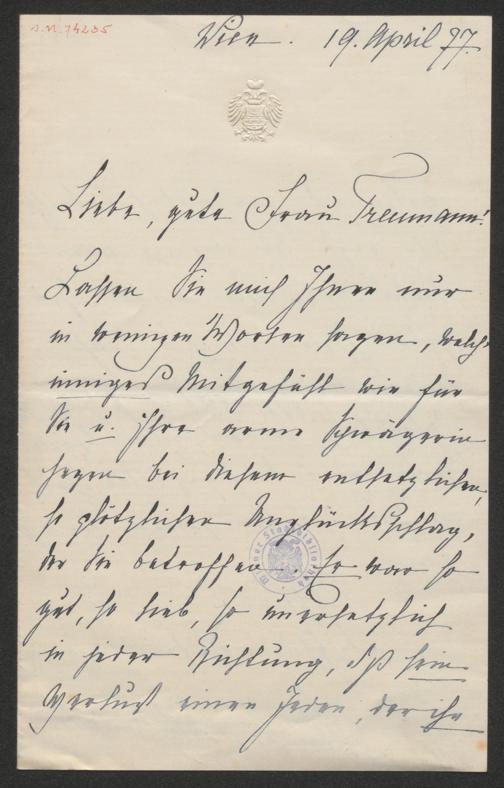 J.N. 74235
Wien. 19. April 77.
Liebe, gute Frau Treumann!
Lassen Sie mich Ihnen nur
in wenigen Worten sagen, welch'
inniges Mitgefühl wir für
Sie u. Ihre arme Schwägerin
hegen bei diesem entsetzlichen,
so plötzlichen Unglücksschlag,
der Sie betroffen. Er war so
gut, so lieb, so unersetzlich
in jeder Richtung, dß sein
Verlust einen Jeden, der ihn
Wiener Stadtbibliothek